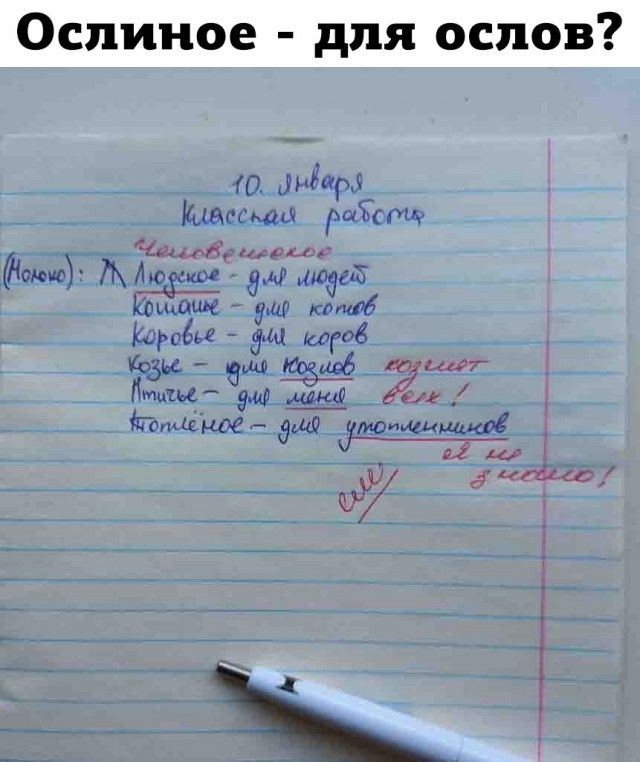 Ослиное - для ослов?
10. Января
Классная работа
Человеческое
(Молоко): Людское - для людей
Кошачье - для котов
Коровье - для коров
Козье - для козлов козлят
Птичье - для меня всех!
Топлёное - для утопленников
Я не
знаю!
см